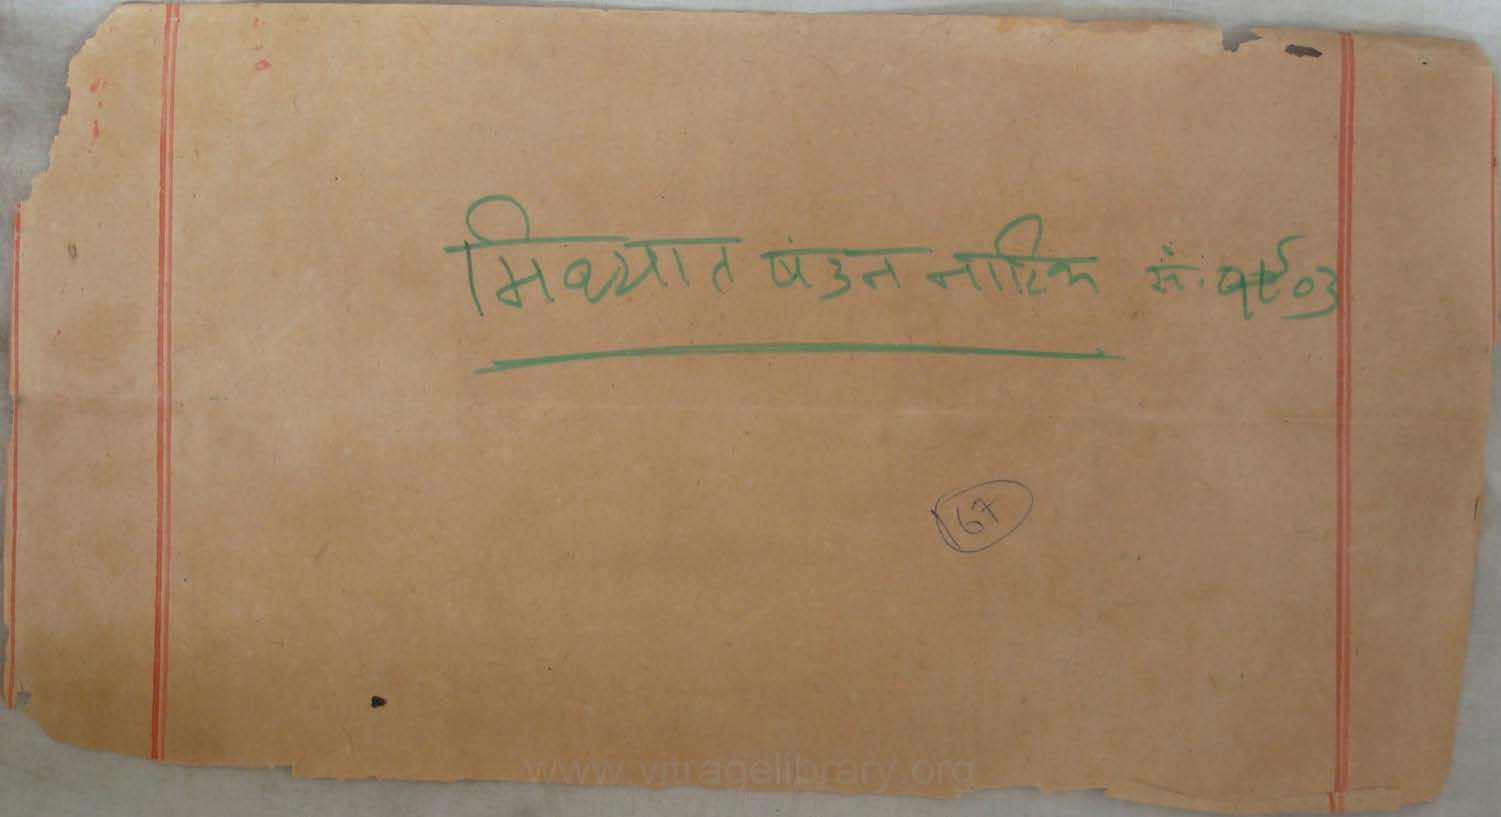 मिथ्यात षंडन नाटिक सं. १९०३
67
www.vitragelibrary.org